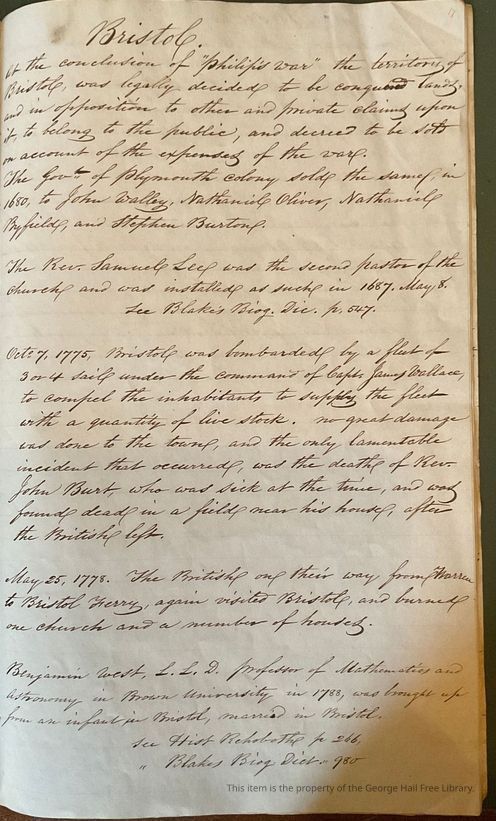 Bristol.
At the conclusion of "Philip's war" the territory of
Bristol, was legally decided to be conquered land,
and in opposition to other and private claims upon
it, to belong to the public, and decreed to be sold
on account of the expenses of the war.
The Govt. of Plymouth colony sold the same, in
1680, to John Walley, Nathaniel Oliver, Nathaniel
Byfield, and Stephen Burton.
The Rev. Samuel Lee was the second pastor of the
church and was installed as such in 1687. May 8.
See Blake's Biog. Dic. p. 547.
Octr. 7, 1775, Bristol was bombarded by a fleet of
3 or 4 sail under the command of Capt. James Wallace,
to compel the inhabitants to supply the fleet
with a quantity of live stock. no great damage
was done to the town, and the only lamentable
incident that occurred, was the death of Rev.
John Burt, who was sick at the time, and was
found dead in a field near his house, after
the British left.
May 25, 1778. The British on their way from Warren
to Bristol Ferry, again visited Bristol, and burned
one church and a number of houses.
Benjamin West, L. L. D. professor of Mathematics and
Astronomy in Brown University in 1788, was brought up
from an infant in Bristol, married in Bristol.
see Hist Rehoboth p 266,
„ Blakes Biog Dict. „ 980
This item is the property of the George Hail Free Library.